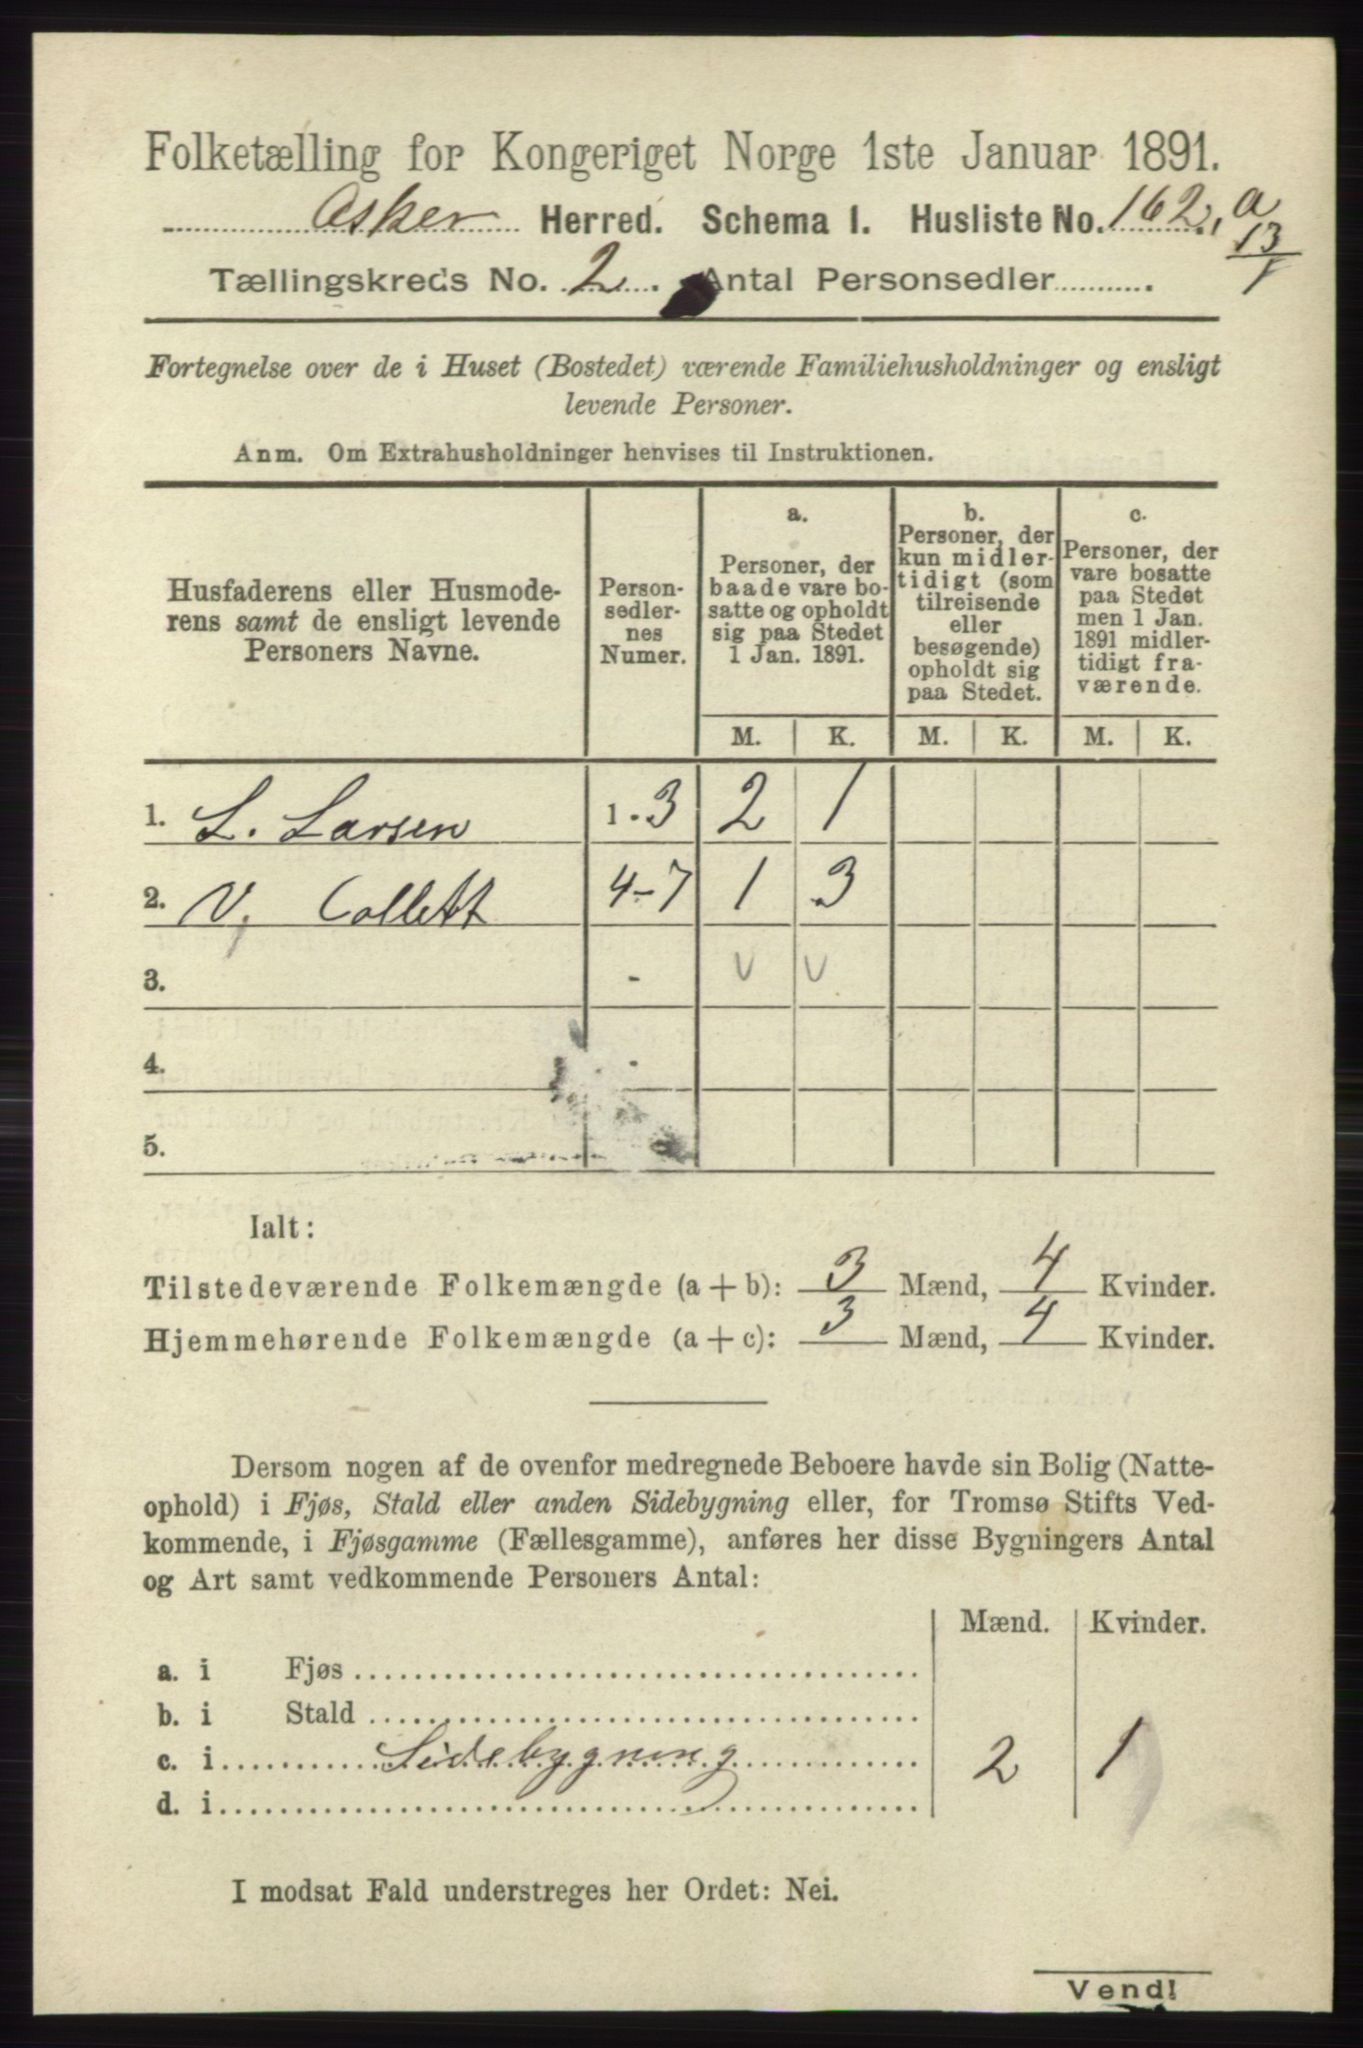 Folketælling for Kongeriget Norge 1ste Januar 1891.
Asker Herred. Schema I. Husliste No. 162, a
13
Tællingskreds No. 2. Antal Personsedler
Fortegnelse over de i Huset (Bostedet) værende Familiehusholdninger og ensligt
levende Personer.
Anm. Om Extrahusholdninger henvises til Instruktionen.
Husfaderens eller Husmode-
rens samt de ensligt levende
Personers Navne.
Person-
sedler-
nes
Numer.
a.
Personer, der
baade vare bo-
satte og opholdt
sig paa Stedet
1 Jan. 1891.
b.
Personer, der
kun midler-
tidigt (som
tilreisende
eller
besøgende)
opholdt sig
paa Stedet.
c.
Personer, der
vare bosatte
paa Stedet
men 1 Jan.
1891 midler-
tidigt fra-
værende.
M. K. M. K. M. K.
1. L. Larsen 1-3 2 1
2. V. Collett 4-7 1 3
3. - v v
4. -
5.
Ialt:
Tilstedeværende Folkemængde (a + b): 3 Mænd, 4 Kvinder.
Hjemmehørende Folkemængde (a + c): 3 Mænd, 4 Kvinder.
Dersom nogen af de ovenfor medregnede Beboere havde sin Bolig (Natte-
ophold) i Fjøs, Stald eller anden Sidebygning eller, for Tromsø Stifts Ved-
kommende, i Fjøsgamme (Fællesgamme), anføres her disse Bygningers Antal
og Art samt vedkommende Personers Antal:
Mænd. Kvinder.
a. i Fjøs
b. i Stald
c. i Sidebygning 2 1
d. i
I modsat Fald understreges her Ordet: Nei.
Vend!